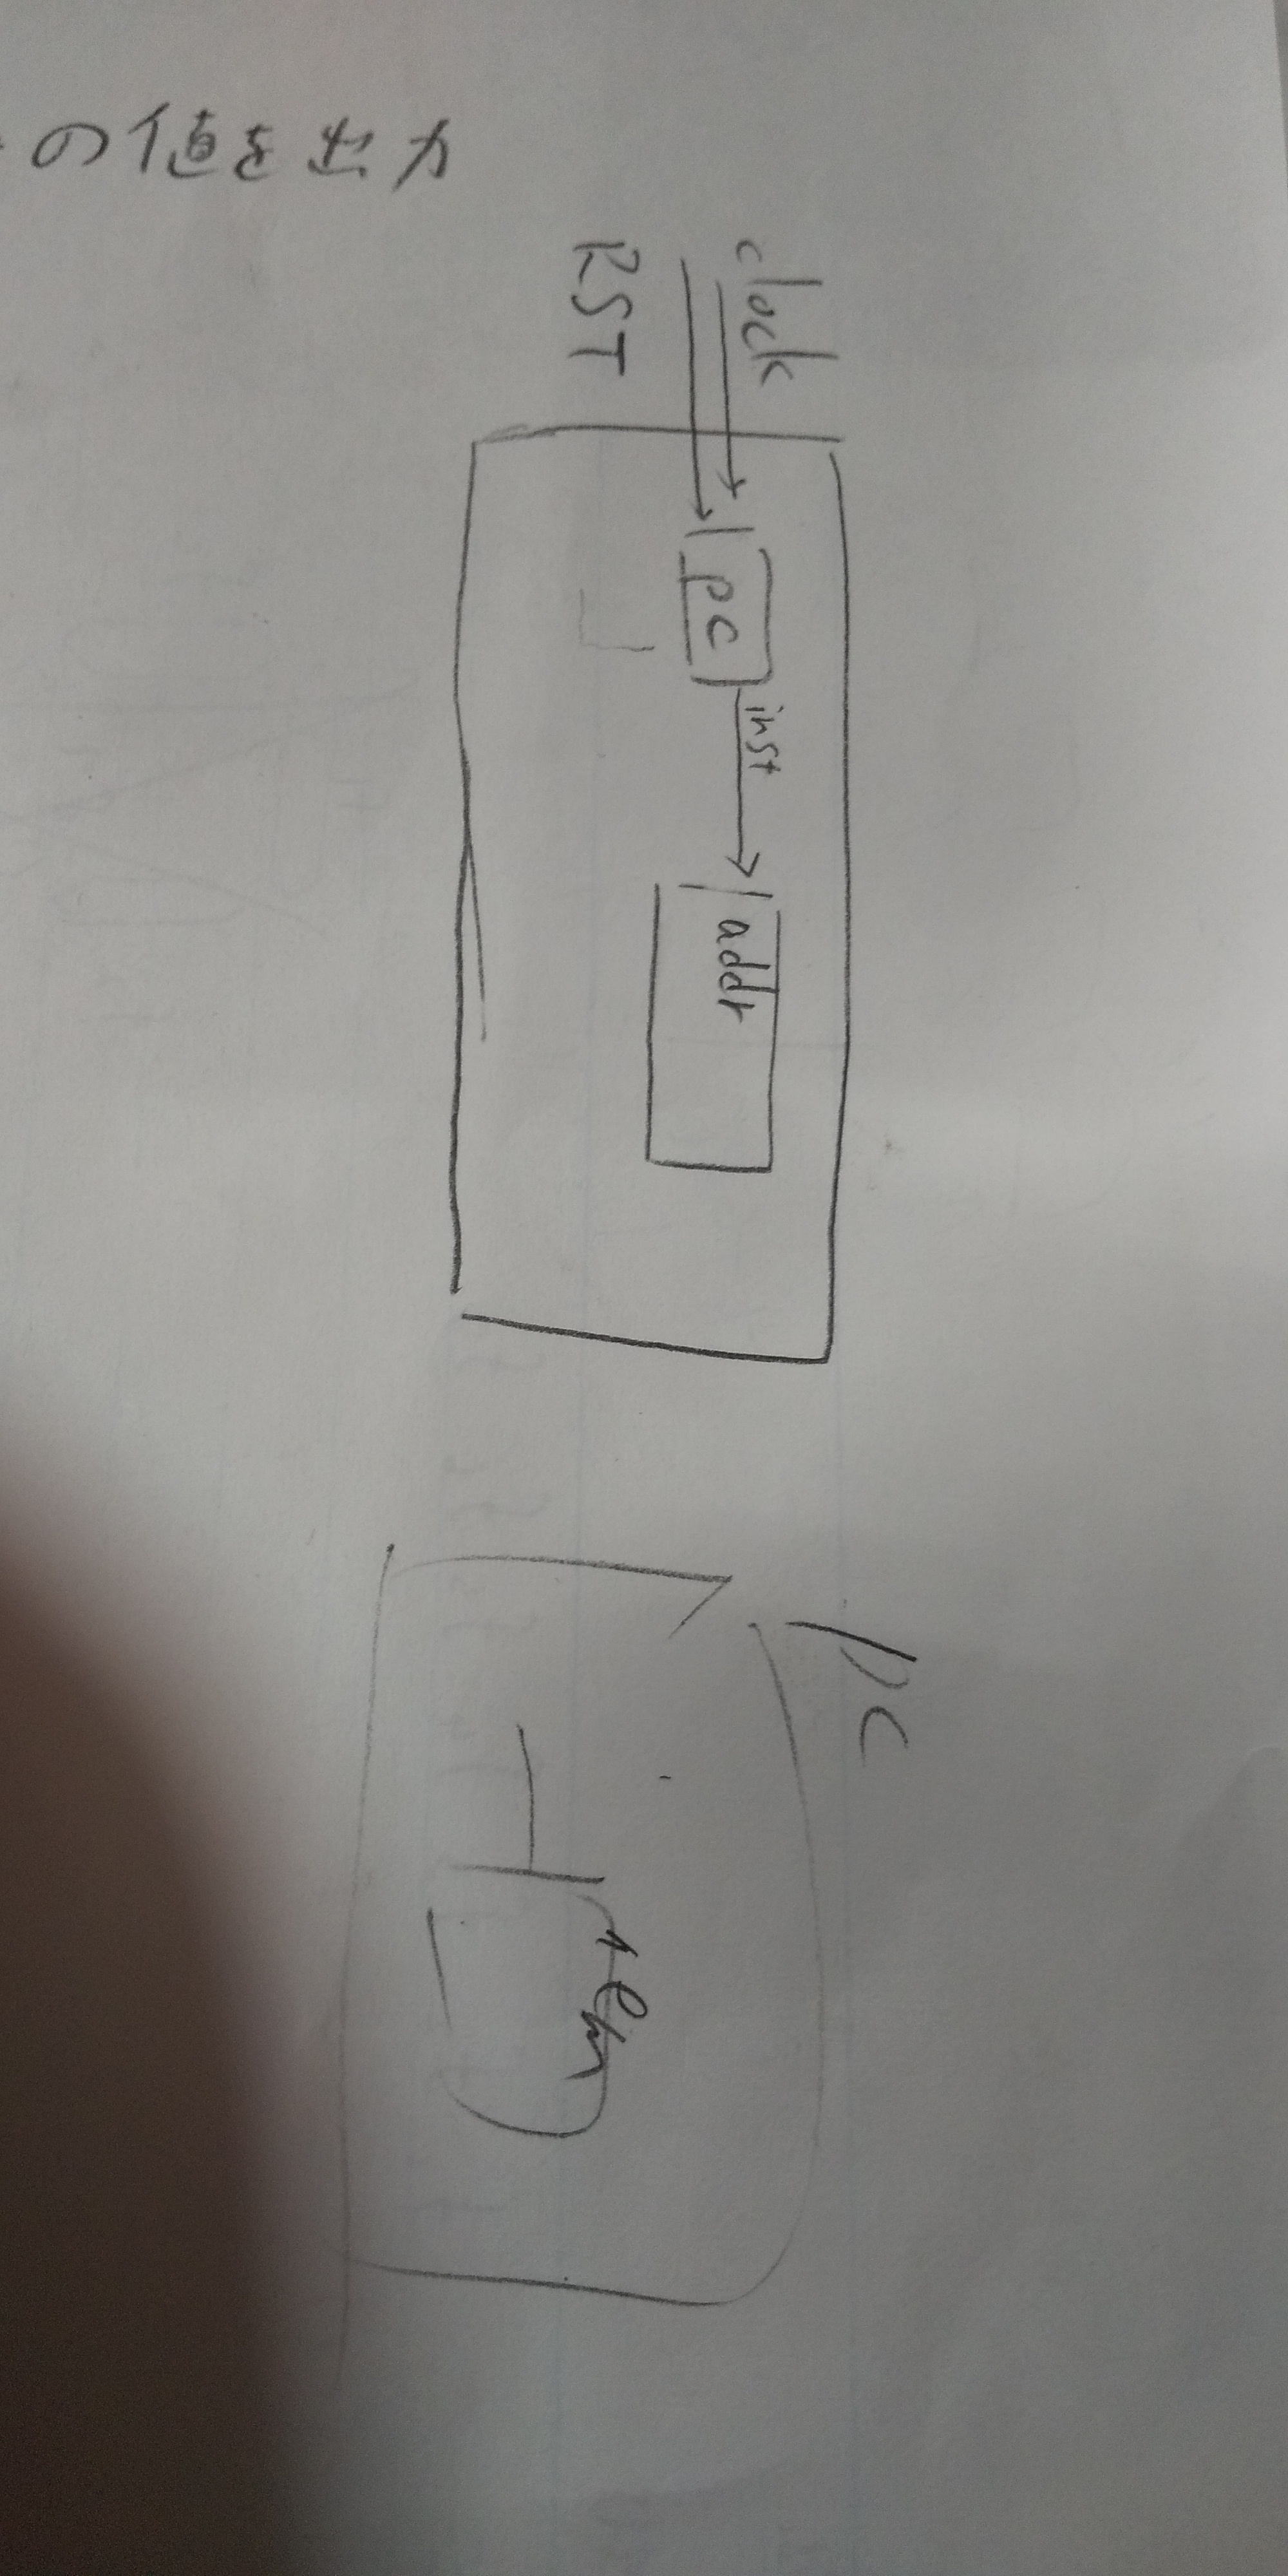 の値を出力
clock
RST
pc
inst
addr
pc